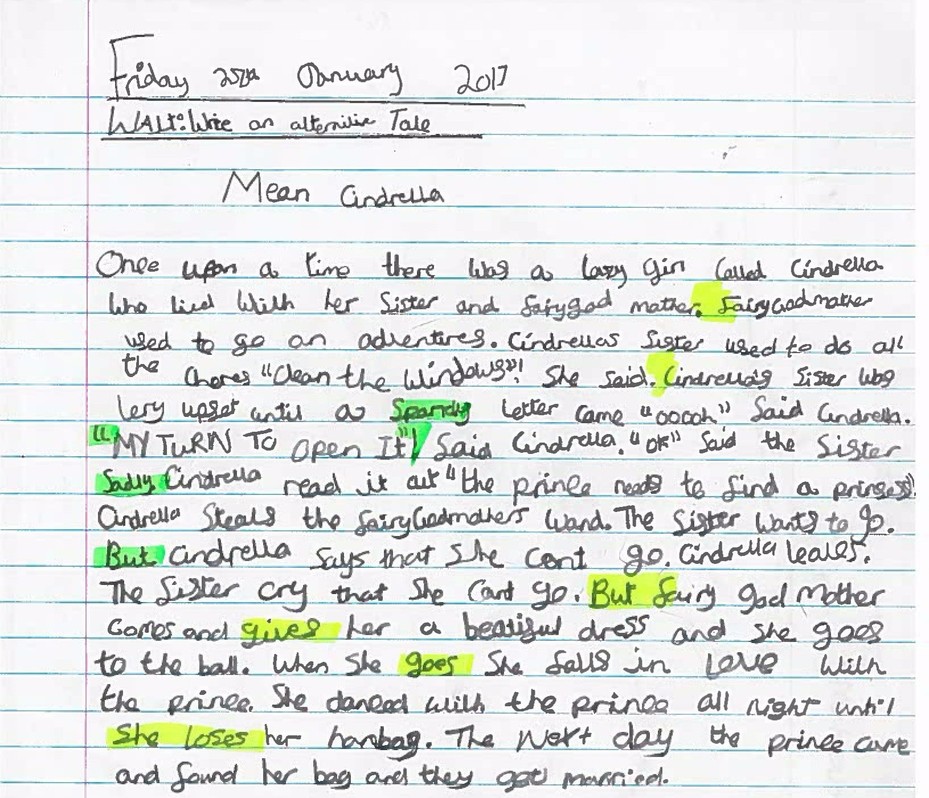 Friday 25th January 2017
WALT: Write an alternitive Tale
Mean Cindrella
Once upon a time there was a lazy girl called Cindrella
who lived with her Sister and fairygod mother. FairyGodmother
used to go on adventures. Cindrellas Sister used to do all
the Chores "Clean the windows"! She said. Cindrella's Sister was
very upset until a Sparrdy letter came "ooooh" Said Cindrella.
"MY TURN TO open It!" Said Cindrella. "OK" Said the Sister
Sadly Cindrella read it out "the prince needs to find a prinsess".
Cindrella Steals the fairyGodmothers wand. The Sister wants to go.
But Cindrella says that She cant go. Cindrella leaves.
The Sister cry that She cant go. But fairy god Mother
comes and gives her a beatiful dress and she goes
to the ball. When She goes She falls in Love with
the prince. She danced with the prince all night until
She loses her hanbag. The next day the prince came
and found her bag and they got married.